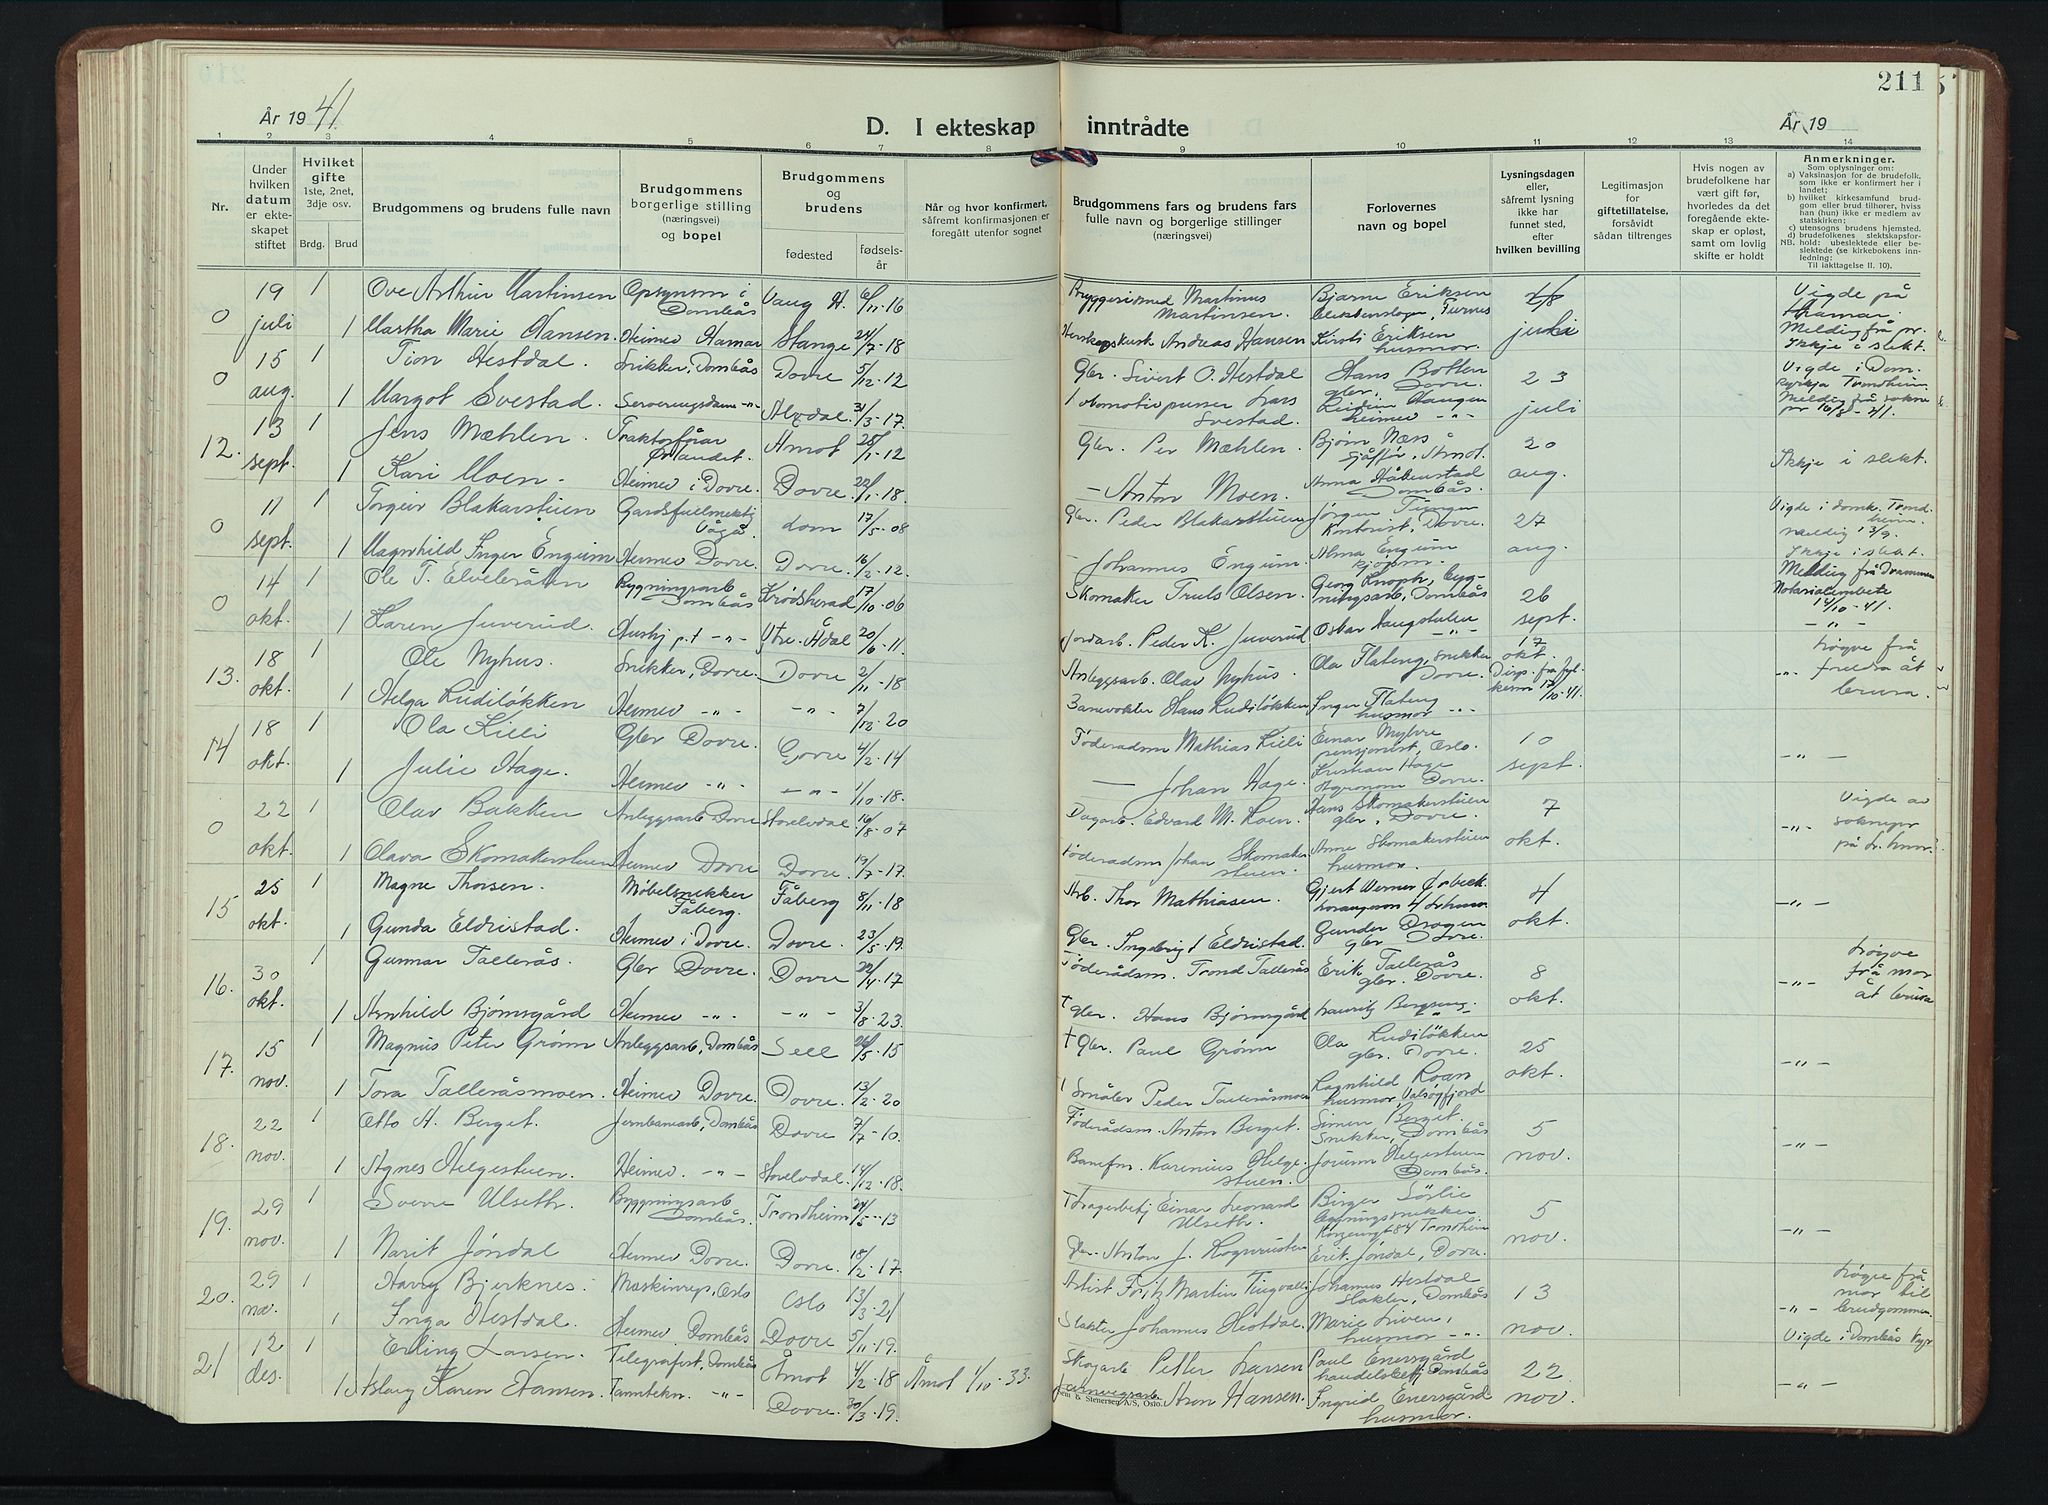 211
År 1941.
D. I ekteskap inntrådte
År 19
1 2 3 4 5 6 7 8 9 10 11 12 13 14
Nr.
Under hvilken datum er ekteskapet stiftet
Hvilket gifte
1ste, 2net, 3dje osv.
Brdg. Brud
Brudgommens og brudens fulle navn
Brudgommens borgerlige stilling (næringsvei) og bopel
Brudgommens og brudens
fødested
fødselsår
Når og hvor konfirmert, såfremt konfirmasjonen er foregått utenfor sognet
Brudgommens fars og brudens fars fulle navn og borgerlige stillinger (næringsvei)
Forlovernes navn og bopel
Lysningsdagen eller, såfremt lysning ikke har funnet sted, efter hvilken bevilling
Legitimasjon for giftetillatelse, forsåvidt sådan tiltrenges
Hvis nogen av brudefolkene har vært gift før, hvorledes da det foregående ekteskap er opløst, samt om lovlig skifte er holdt
Anmerkninger.
Som oplysninger om:
a) Vaksinasjon for de brudefolk, som ikke er konfirmert her i landet;
b) hvilket kirkesamfund brudgom eller brud tilhører, hviss han (hun) ikke er medlem av statskirken;
c) utensogns brudens hjemsted.
d) brudefolkenes slektskapsforhold: ubeslektede eller beslektede (se kirkebokens innledning:
NB.
Til iakttagelse II. 10).
0 19 juli 1 Ove Arthur Martinsen Opsynsm i Dombås Vang H. 6/11-16 Bryggeriarbeid Martinus Martinsen. Bjarne Eriksen Furnes Vigde på Hamar.
1 Martha Marie Hansen. Heimev Hamar Stange 24/7-18 Andreas Hansen Kirsti Eriksen husmor. juli Melding frå pr. Ikkje i slekt.
0 15 aug. 1 Hestdal. Snikker, Dombås Dovre 5/12-12 Gbr. Sivert O. Hestdal Hans Botten gbr. Dovre. 23 Vigde i Dom-kyrkja Trondheim.
1 Margot Svestad. Serveringsdame -"- Alvdal 31/3-17. Lokomotivpusser Lars Svestad. Haugen heimev -"- juli Melding frå sokne pr 16/8-41.
12. 13 sept. 1 Jens Mæhlen. Traktorførar Ørlandet. Åmot 25/1-12 Gbr. Per Mæhlen. Bjørn Næss sjåfør, Åmot. 20
1 Kari Moen. Heimev i Dovre. Dovre. 22/1-18. — Anton Moen. Anna Håkenstad Dombås. aug. Ikkje i slekt.
0 11 sept. 1 Torgeir Blakarstuen Gardsfullmektig Vågå Lom 17/5-08 Gbr. Peder Blakarstuen Jørgen Dovre. 27 Vigde i domk. Trondheim. melding 13/9.
1 Magnhild Inger Engum Heimev Dovre. Dovre. 16/2-12. — Johannes Engum. Alma Engum aug. Ikkje i slekt.
0 14 okt. 1 Ole T. Elvebråten Bygningsarb Dombås Krødsherad 17/10-06 Skomaker Truls Olsen. Georg Knoph, bygningsarb, Dombås 26 Melding frå Drammen Notarialembete 14/10-41.
1 Karen Juverud. Hushj p.t -"- Ytre Ådal 20/6-11. Jordarb. Peder K. Juverud Oskar Haugstulen -"- sept. -"-
13. 18 okt. 1 Ole Nyhus. Snikker, Dovre. Dovre 2/11-18 Anleggsarb. Olav Nyhus. Ola Flateng, snikker Dovre. 17 okt. Løyve frå
1 Helga Rudiløkken Heimev -"- -"- 7/12-20 Banevokter Hans Rudiløkken Inger Flateng husmor -"- Disp. frå fylkesm 17/10-41. -"- brura.
14 18 okt. 1 Ola Kirli Gbr Dovre. Dovre 4/2-14 Føderadsm Mathias Kirli Einar Myhre pensjonist, Oslo. 10
1 Julie Hage. Heimev -"- -"- 1/10-18. — Johan Hage. Kristian Hage Agronom Dovre. sept. -"-
0 22 okt. 1 Olav Bakken Anleggsarb Dovre Storelvdal 16/8-07 Dagarb. Edvard M. Moen. Hans Skomakerstuen gbr, Dovre. 7 Vigde av sokneprest
1 Olava Skomakerstuen Heimev Dovre Dovre. 19/7-17. Føderadsm Johan Skomakerstuen. Anne Skomakerstuen husmor. okt. -"-
15 25 okt. 1 Magne Thorsen. Møbelsnikker Fåberg. Fåberg 8/11-18 Arb. Thor Mathiasen. Gjert Werner Ørbeck 4
1 Gunda Eldristad. Heimev i Dovre. Dovre. 23/5-19. Gbr. Ingebrigt Eldristad. Gunder Dragen gbr Dovre. okt. -"-
16. 30 okt. 1 Gunnar Tallerås. Gbr Dovre. Dovre 22/4-17 Føderådsm. Trond Tallerås Erik Tallerås gbr. Dovre. 8 Løyve frå mor åt brura
1 Arnhild Bjørnsgård Heimev -"- -"- 3/8-23. † Gbr. Hans Bjørnsgård Lauritz Bergseng. okt. -"-
17. 15 nov. 1 Magnus Peter Grønn Anleggsarb, Dombås Sell 26/5-15 † Gbr. Paul Grønn Ola Rudiløkken gbr. Dovre. 25
1 Tora Talleråsmoen. Heimev Dovre. Dovre. 13/2-20 Småbr Peder Talleråsmoen Ragnhild Roan husmor, Valsøyfjord okt. -"-
18. 22 nov. 1 Otto H. Berget. Jernbanearb, Dombås Dovre 7/7-10. Føderådsm. Anton Berget. Simen Berget. Snikker, Dombås 5
1 Agnes Helgestuen. Heimev. -"- Storelvdal. 14/12-18. Banefm. Karenius Helgestuen. Jorunn Helgestuen Dombås. nov. -"-
19. 29 nov. 1 Sverre Ulseth. Bygningsarb Dombås. Trondheim 24/5-13 Einar Leonard Ulseth. Birger Sørlie bygningssnikker Trondheim 5
1 Marit Jøndal Heimev Dovre. Dovre. 18/2-17. Gbr. Anton J. Erik Jøndal, Dovre. nov. -"-
20. 29 nov. 1 Harry Bjerknes. Maskinrep, Oslo Oslo 13/3-21 Artist Fritz Martin Tingvalli Johannes Hestdal Slakter, Dombås 13 Løyve frå mor til brudgommen.
1 Inga Hestdal. Heimev Dombås Dovre 5/11-19. Slakter Johannes Hestdal. Marie husmor -"- nov. -"-
21 12 des. 1 Erling Larsen. Telegrafist, Dombås Åmot 4/2-18 Åmot 1/10-33. Skogarb Petter Larsen Paul Enersgård handelsbetj Dombås 22 Vigde i Dombås
1 Aslaug Karen Hansen. Tanntekn. -"- Dovre. 30/3-19. Aron Hansen. Ingrid Enersgård husmor. nov. -"-
Stenersen A/S, Oslo.